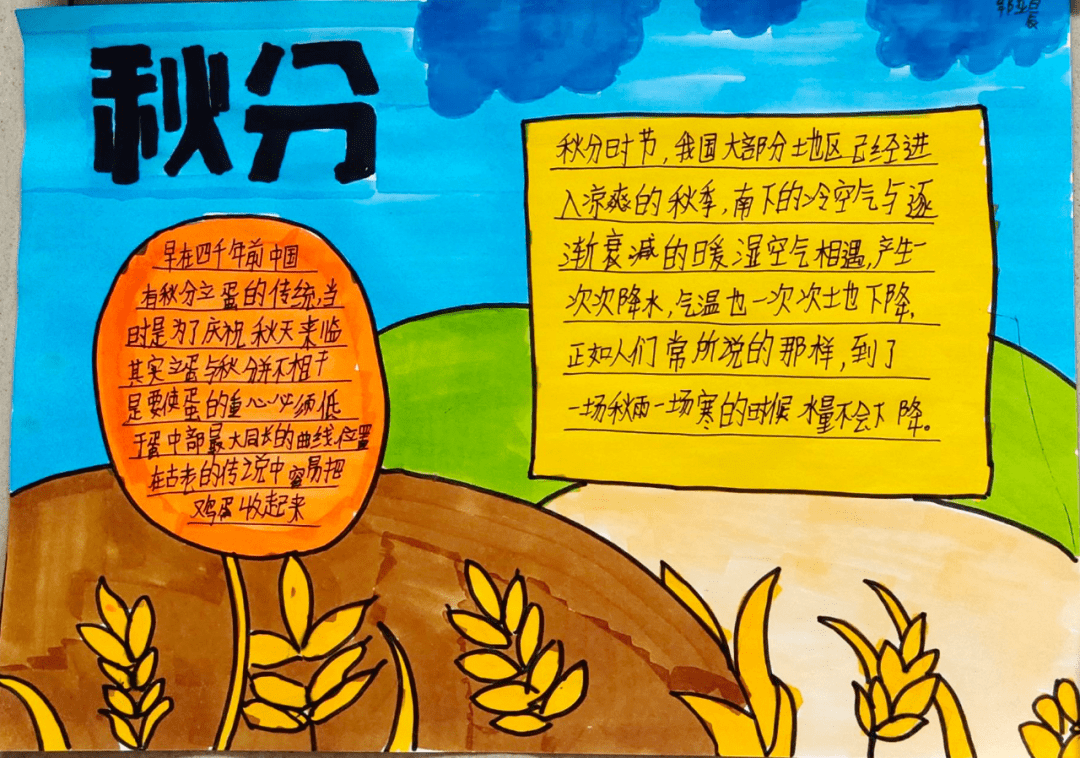 秋分
早在四千年前中国
有秋分立蛋的传统,当
时是为了庆祝秋天来临
其实立蛋与秋分并不相干
是要使蛋的重心必须低
于蛋中部最大周长的曲线位置
在古老的传说中容易把
鸡蛋收起来
秋分时节,我国大部分土地区己经进
入凉爽的秋季,南下的冷空气与逐
渐衰减的暖湿空气相遇,产生一
次次降水,气温也一次次土也下降,
正如人们常所说的那样,到了
一场秋雨一场寒的时候 水量不会下降。